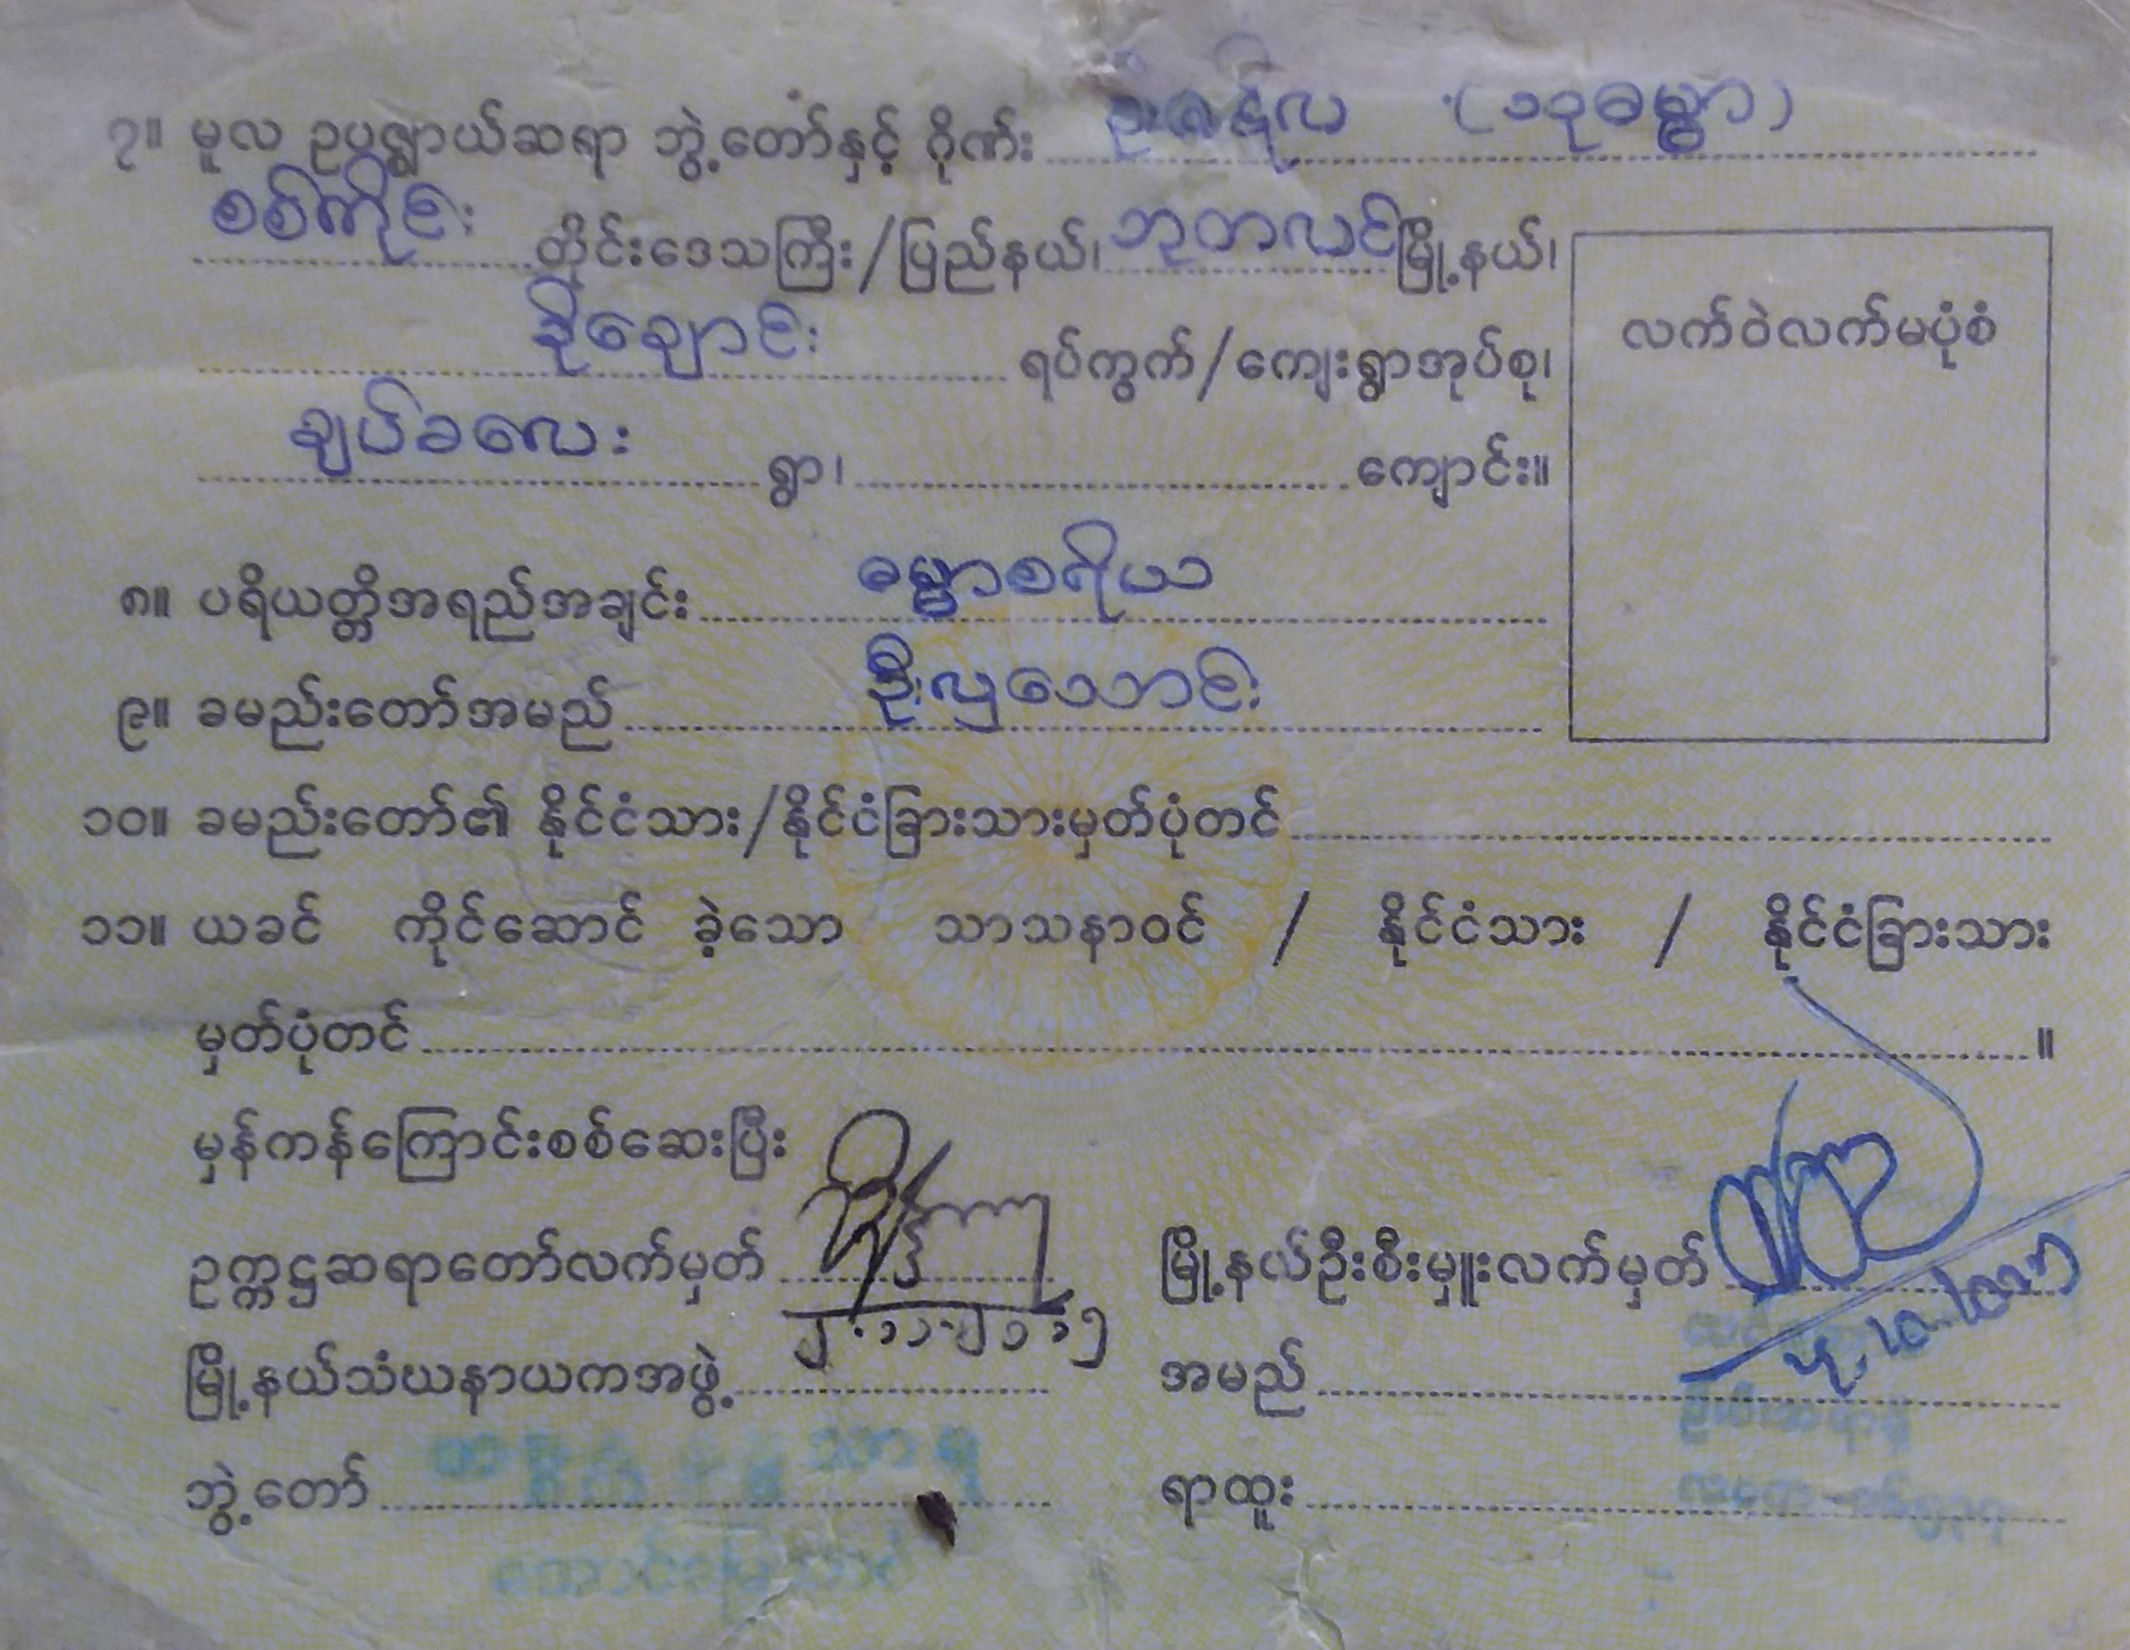 ၇။ မူလ ဥပဇ္ဈာယ်ဆရာ ဘွဲ့တော်နှင့် ဂိုဏ်း ဦး (သုဓမ္မာ)
စစ်ကိုင်း တိုင်းဒေသကြီး/ပြည်နယ်၊ ဘုတလင် မြို့နယ်၊
ခိုချောင်း ရပ်ကွက်/ကျေးရွာအုပ်စု၊ လက်ဝဲလက်မပုံစံ
ချပ်ခလေး ရွာ၊ ကျောင်း။
၈။ ပရိယတ္တိအရည်အချင်း ဓမ္မာစရိယ
၉။ ခမည်းတော်အမည် ဦးလှသောင်း
၁၀။ ခမည်းတော်၏ နိုင်ငံသား/နိုင်ငံခြားသားမှတ်ပုံတင်
၁၁။ ယခင် ကိုင်ဆောင် ခဲ့သော သာသနာဝင် / နိုင်ငံသား / နိုင်ငံခြားသား
မှတ်ပုံတင် ။
မှန်ကန်ကြောင်းစစ်ဆေးပြီး
ဥက္ကဋ္ဌဆရာတော်လက်မှတ် မြို့နယ်ဦးစီးမှူးလက်မှတ်
မြို့နယ်သံဃနာယကအဖွဲ့ အမည်
ဘွဲ့တော် ရာထူး